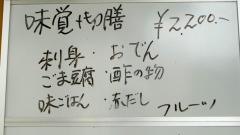 味覚付切膳 ¥2,200.-
刺身・おでん
ごま豆腐・酢の物
味ごはん・赤だし
フルーツ